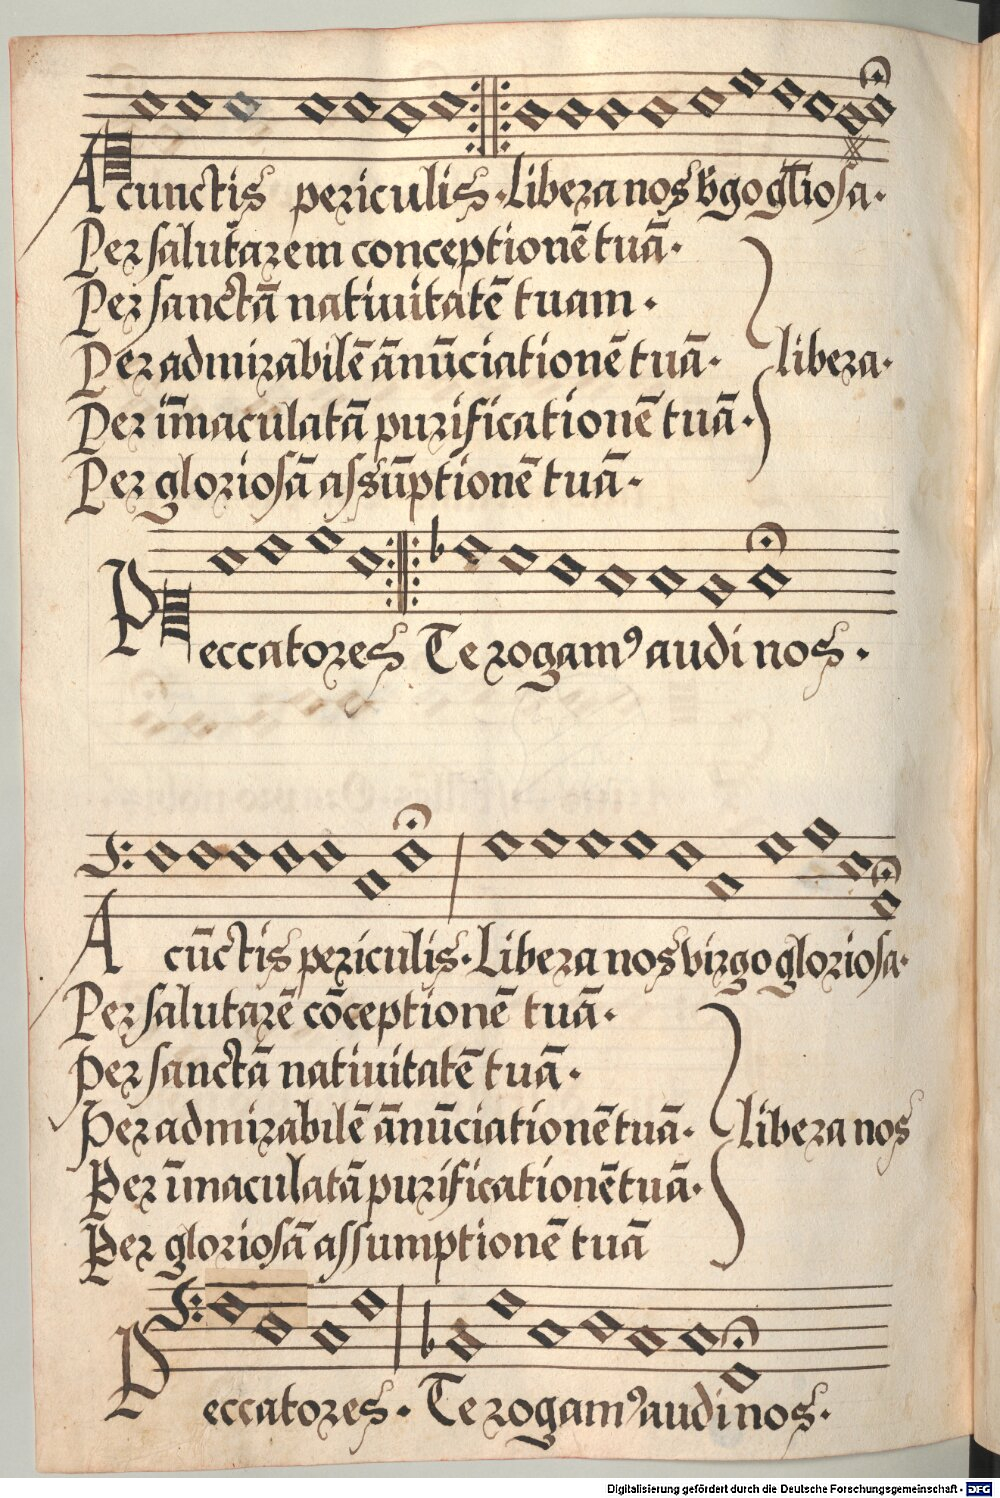 A cunctis periculis · Libera nos v̄go gl̄iosa ·
Per salutarem conceptionē tuā ·
Per sanctā natiuitatē tuam ·
Per admirabilē ānūciationē tuā · libera ·
Per īmaculatā purificationē tuā ·
Per gloriosā assūptionē tuā ·
Peccatores Te rogamꝰ audi nos ·
A cūctis periculis · Libera nos virgo gloriosa ·
Per salutarē cōceptionē tuā ·
Per sanctā natiuitatē tuā ·
Per admirabilē ānūciationē tuā · libera nos
Per īmaculatā purificationē tuā ·
Per gloriosā assumptionē tuā
Peccatores · Te rogamꝰ audi nos ·
Digitalisierung gefördert durch die Deutsche Forschungsgemeinschaft - DFG